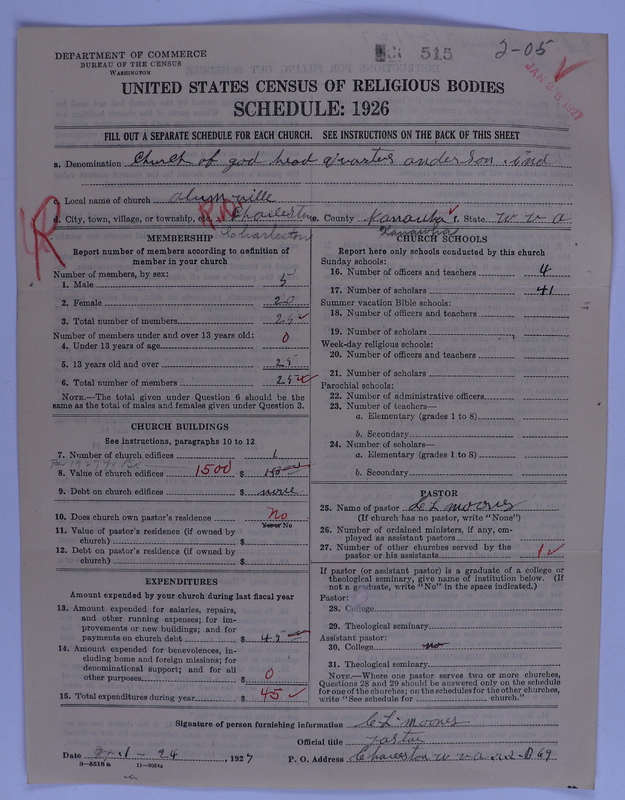 DEPARTMENT OF COMMERCE
BUREAU OF THE CENSUS
WASHINGTON
515
2-05
JAN 26 1927
UNITED STATES CENSUS OF RELIGIOUS BODIES
SCHEDULE: 1926
FILL OUT A SEPARATE SCHEDULE FOR EACH CHURCH. SEE INSTRUCTIONS ON THE BACK OF THIS SHEET
a. Denomination Church of god head quarters anderson ind
c. Local name of church alum ville
R
d. City, town, village, or township, etc. R.D. Charleston e. County Kanauha f. State W v a
Charleston
Kanawha
MEMBERSHIP
Report number of members according to definition of
member in your church
Number of members, by sex:
1. Male 5
2. Female 20
3. Total number of members 25
Number of members under and over 13 years old:
4. Under 13 years of age 0
5. 13 years old and over 25
6. Total number of members 25
NOTE.—The total given under Question 6 should be
the same as the total of males and females given under Question 3.
CHURCH BUILDINGS
See instructions, paragraphs 10 to 12
7. Number of church edifices 1
8. Value of church edifices 1500 $ 1500
9. Debt on church edifices $ none
10. Does church own pastor's residence No
Yes or No
11. Value of pastor's residence (if owned by
church) $
12. Debt on pastor's residence (if owned by
church) $
EXPENDITURES
Amount expended by your church during last fiscal year
13. Amount expended for salaries, repairs,
and other running expenses; for im-
provements or new buildings; and for
payments on church debt $ 45
14. Amount expended for benevolences, in-
cluding home and foreign missions; for
denominational support; and for all
other purposes $ 0
15. Total expenditures during year $ 45
CHURCH SCHOOLS
Report here only schools conducted by this church
Sunday schools:
16. Number of officers and teachers 4
17. Number of scholars 41
Summer vacation Bible schools:
18. Number of officers and teachers
19. Number of scholars
Week-day religious schools:
20. Number of officers and teachers
21. Number of scholars
Parochial schools:
22. Number of administrative officers
23. Number of teachers—
a. Elementary (grades 1 to 8)
b. Secondary
24. Number of scholars—
a. Elementary (grades 1 to 8)
b. Secondary
PASTOR
25. Name of pastor C L moores
(If church has no pastor, write "None")
26. Number of ordained ministers, if any, em-
ployed as assistant pastors
27. Number of other churches served by the
pastor or his assistants 1
If pastor (or assistant pastor) is a graduate of a college or
theological seminary, give name of institution below. (If
not a graduate, write "No" in the space indicated.)
Pastor:
28. College
29. Theological seminary
Assistant pastor:
30. College no
31. Theological seminary
NOTE.—Where one pastor serves two or more churches,
Questions 28 and 29 should be answered only on the schedule
for one of the churches; on the schedules for the other churches,
write "See schedule for church."
Signature of person furnishing information C L moores
Official title Pastor
Date 1 - 24, 1927 P. O. Address Charleston W v a
8-5518a 11-9054a